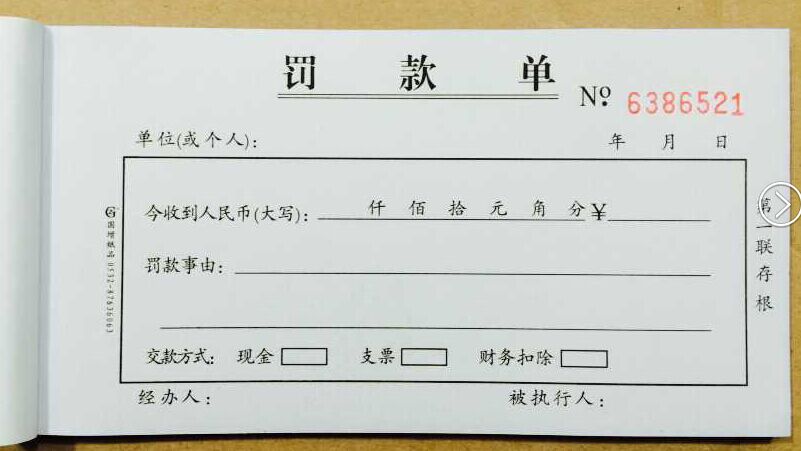 罚款单
Nº 6386521
单位(或个人): 年 月 日
今收到人民币(大写): 仟 佰 拾 元 角 分 ¥
罚款事由:
交款方式: 现金 支票 财务扣除
经办人: 被执行人:
第一联存根
国增纸品 0532-87636063